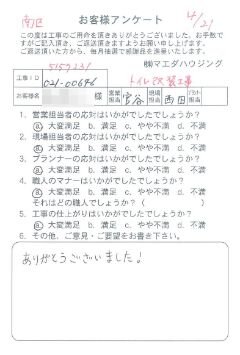 南区
お客様アンケート
4/21
この度は工事のご用命を頂きありがとうございました。お手数で
すがご記入頂き、ご返送頂きますようお願い申し上げます。
ご返送頂いた方から、毎月抽選で感謝品を進呈いたします。
5159231
㈱マエダハウジング
工事ID 021-00646
トイレ改装工事
お客様名 様 営業担当 宮谷 現場担当 西田 プランナー担当
1. 営業担当者の応対はいかがでしたでしょうか?
a. 大変満足 b. 満足 c. やや不満 d. 不満
2. 現場担当者の応対はいかがでしたでしょうか?
a. 大変満足 b. 満足 c. やや不満 d. 不満
3. プランナーの応対はいかがでしたでしょうか?
a. 大変満足 b. 満足 c. やや不満 d. 不満
4. 職人のマナーはいかがでしたでしょうか?
a. 大変満足 b. 満足 c. やや不満 d. 不満
それはどの職人でしょうか ( )
5. 工事の仕上がりはいかがでしたでしょうか?
a. 大変満足 b. 満足 c. やや不満 d. 不満
6. その他、ご意見・ご要望をお書き下さい。
ありがとうございました!